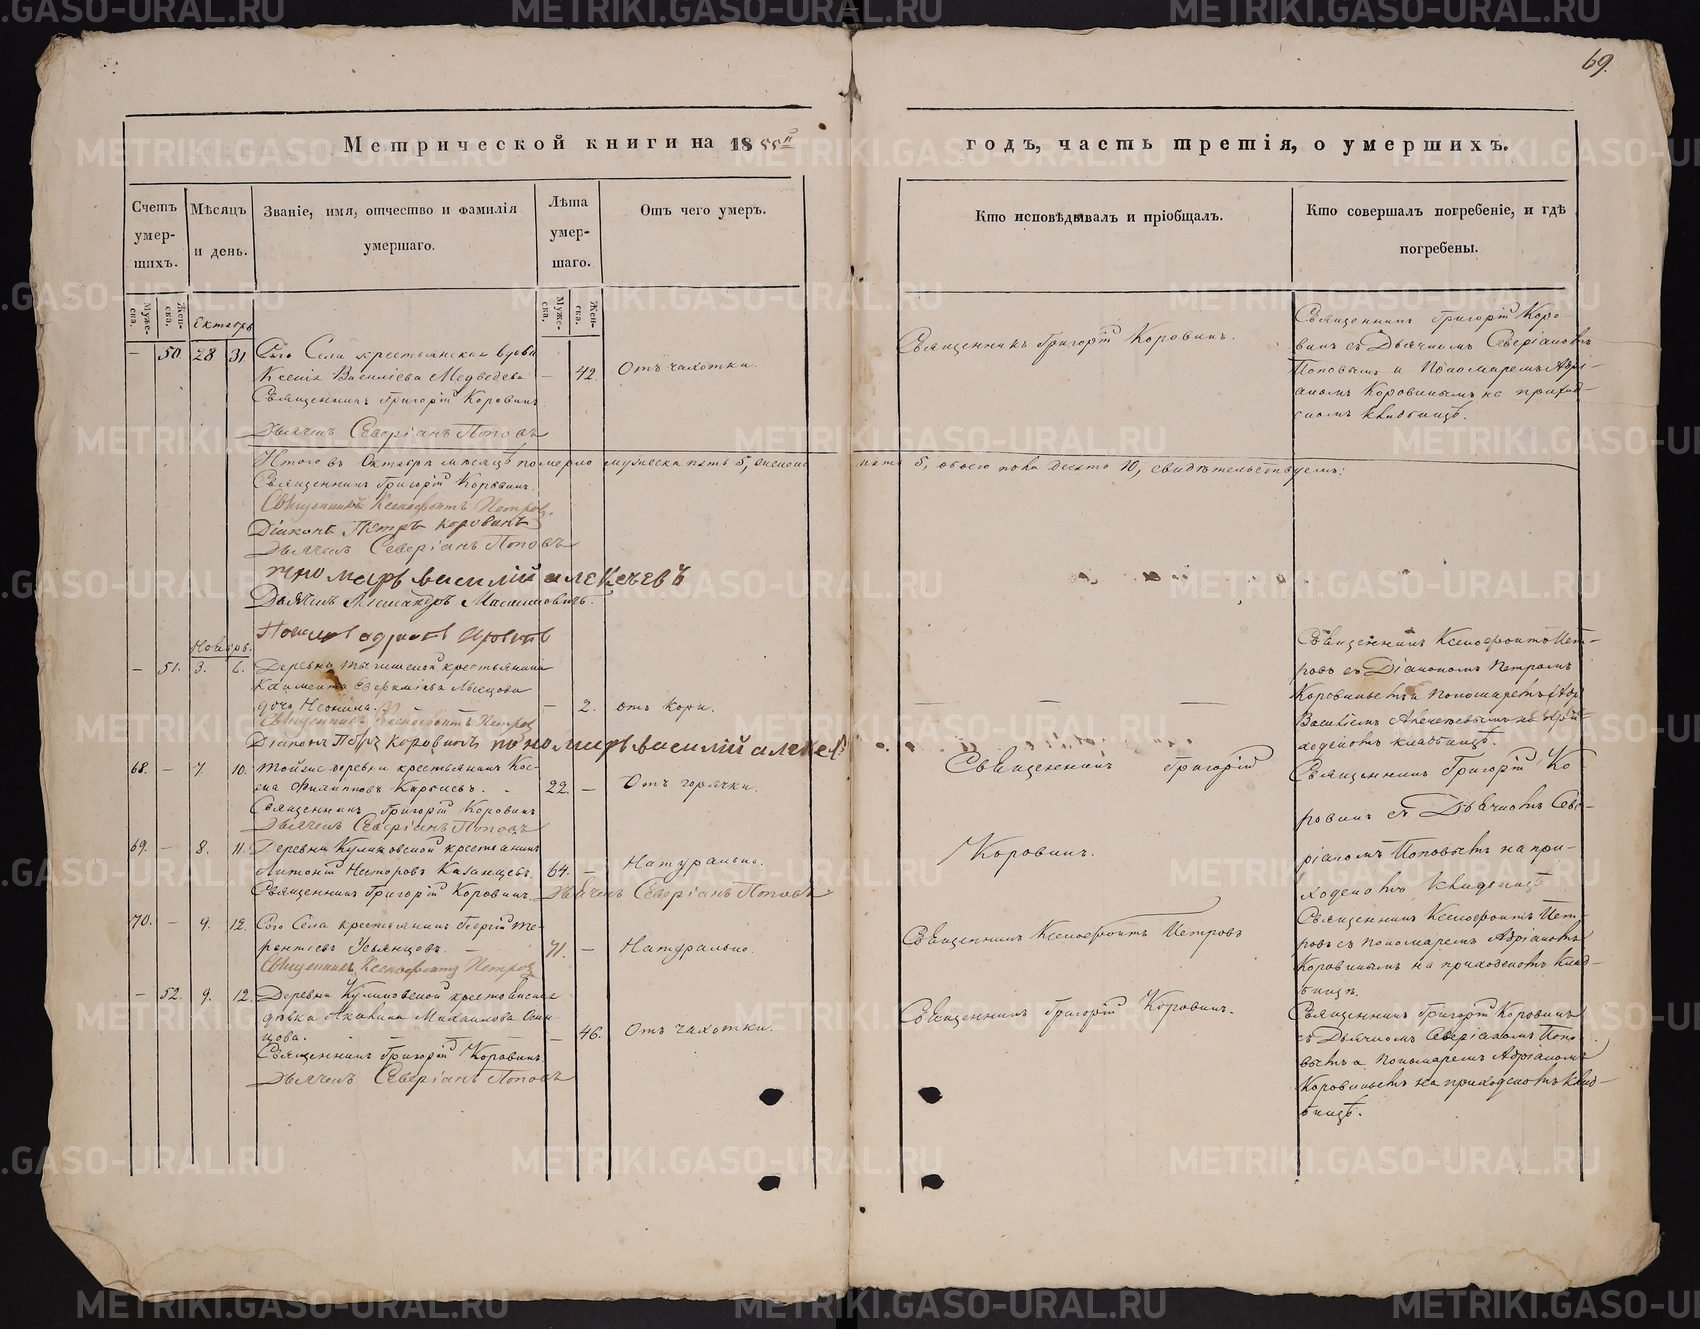 69.
Метрической книги на 1855й
годъ, часть третія, о умершихъ.
Счетъ умер-
шихъ.
Мѣсяцъ
и день.
Званіе, имя, отчество и фамилія
умершаго.
Лѣта
умер-
шаго.
Отъ чего умеръ.
Кто исповѣдывалъ и пріобщалъ.
Кто совершалъ погребеніе, и гдѣ
погребены.
Муже-
ска.
Жен-
ска.
Муже-
ска.
Жен-
ска.
Октябрь
— 50 28 31 Сего Села крестьянская вдова
Ксенія Васильева Медведева — 42. Отъ чахотки.
Священникъ Григорій Коровинъ
Дьячекъ Северіанъ Поповъ
Священникъ Григорій Коровинъ.
Священникъ Григорій Коро-
винъ съ Дьячкомъ Северіаномъ
Поповымъ и Пономаремъ Адрі-
аномъ Коровинымъ на приход-
скомъ кладбищѣ.
Итого въ Октябрѣ мѣсяцѣ померло мужеска пять 5, женска пять 5, обоего пола десять 10, свидѣтельствуемъ:
Священникъ Григорій Коровинъ.
Священникъ Ксенофонтъ Петровъ.
Діаконъ Петръ Коровинъ
Дьячекъ Северіанъ Поповъ
пономарь василій алексеевъ
Дьячекъ Александръ
Ноябрь.
— 51. 3. 6. Деревни крестьянина
дочь — 2. отъ кори.
Священникъ Ксенофонтъ Петровъ
Діаконъ Петръ Коровинъ пономарь василій алексеев
— — —
Священникъ Ксенофонтъ Пет-
ровъ съ Діакономъ Петромъ
Коровинымъ и Пономаремъ
Василіемъ Алексеевымъ на при-
ходскомъ кладбищѣ.
68. — 7. 10. Тойже деревни крестьянинъ Кос-
ма Филипповъ 22. — Отъ горячки.
Священникъ Григорій Коровинъ
Дьячекъ Северіанъ Поповъ
Священникъ Григорій
Коровинъ.
Священникъ Григорій Ко
ровинъ съ Дьячкомъ Севе-
ріаномъ Поповымъ на при-
ходскомъ кладбищѣ
69. — 8. 11. Деревни Куликовской крестьянинъ
Антоній Несторовъ Казанцевъ. 64. — Натурально.
Священникъ Григорій Коровинъ. Дьячекъ Северіанъ Поповъ
70. — 9. 12. Сего Села крестьянинъ Георгій Те-
рентьевъ Усьянцовъ. — 71. — Натурально.
Священникъ Ксенофонтъ Петровъ
Священникъ Ксенофонтъ Петровъ
Священникъ Ксенофонтъ Пет-
ровъ съ пономаремъ Адріаномъ
Коровинымъ на приходскомъ клад-
бищѣ.
— 52. 9. 12. Деревни Куликовской крестьянская
дѣвка Акилина Михаилова
— 46. Отъ чахотки.
Священникъ Григорій Коровинъ.
Дьячекъ Северіанъ Поповъ
Священникъ Григорій Коровинъ.
Священникъ Григорій Коровинъ
съ Дьячкомъ Северіаномъ Попо-
вымъ и Пономаремъ Адріаномъ
Коровинымъ на приходскомъ клад-
бищѣ.
METRIKI.GASO-URAL.RU